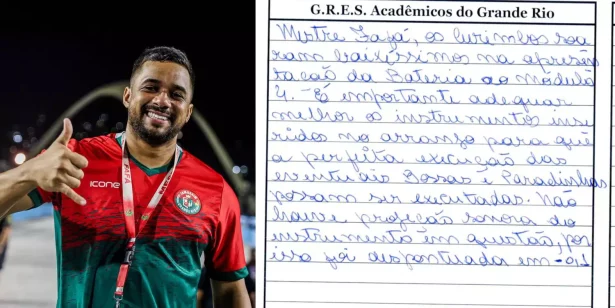 G.R.E.S. Acadêmicos do Grande Rio
Mestre Fafá, os Curimbos soa
ram baixíssimos na apresen
tação da Bateria ao módulo
4. É importante adequar
melhor os instrumentos inse
ridos no arranjo para que
a perfeita execução das
eventuais Bossas e Paradinhas
possam ser executadas. Não
houve projeção sonora do
instrumento em questão, por
isso foi despontuada em -0,1
ICONE